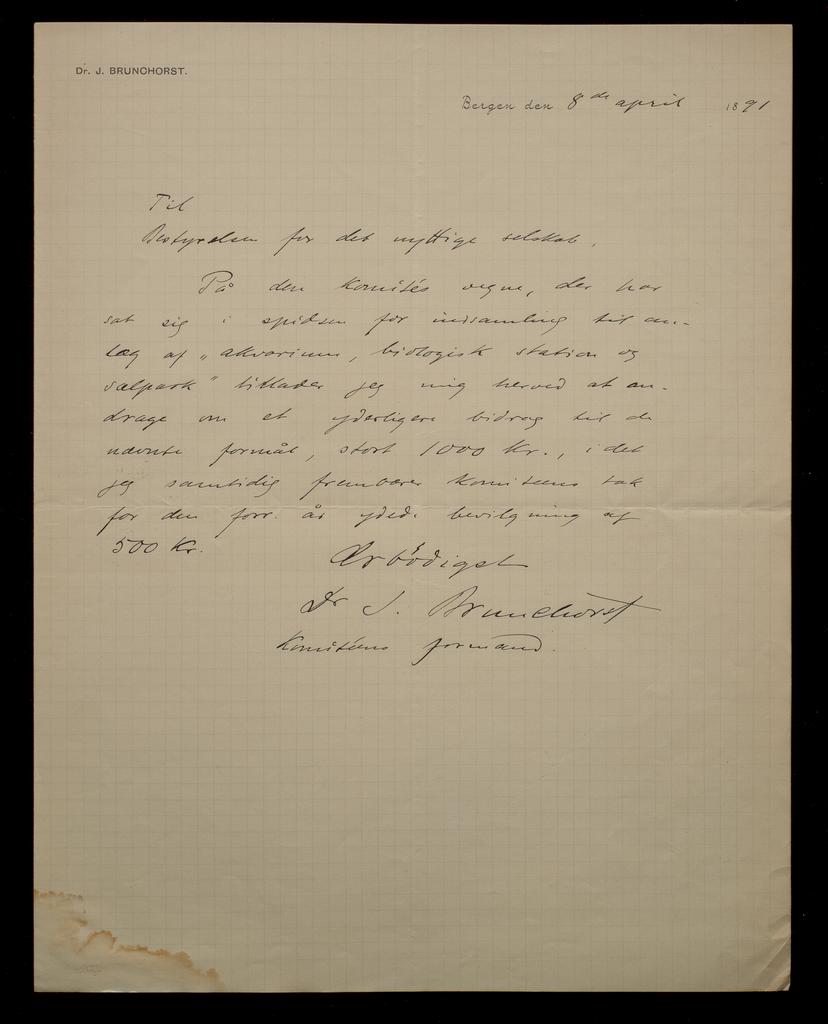 Dr. J. BRUNCHORST.
Bergen den 8de april 1891
Til
Bestyrelsen for det nyttige selskab.
På den komités vegne, der har
sat sig i spidsen for indsamling til an-
læg af „akvarium, biologisk station og
sælpark" tillader jeg mig herved at an-
drage om et yderligere bidrag til de
nævnte formål, stort 1000 Kr., i det
jeg samtidig frembærer komiteens tak
for den forr. år ydede bevilgning af
500 Kr.
Ærbödigst
Dr J. Brunchorst
Komitéens formand.